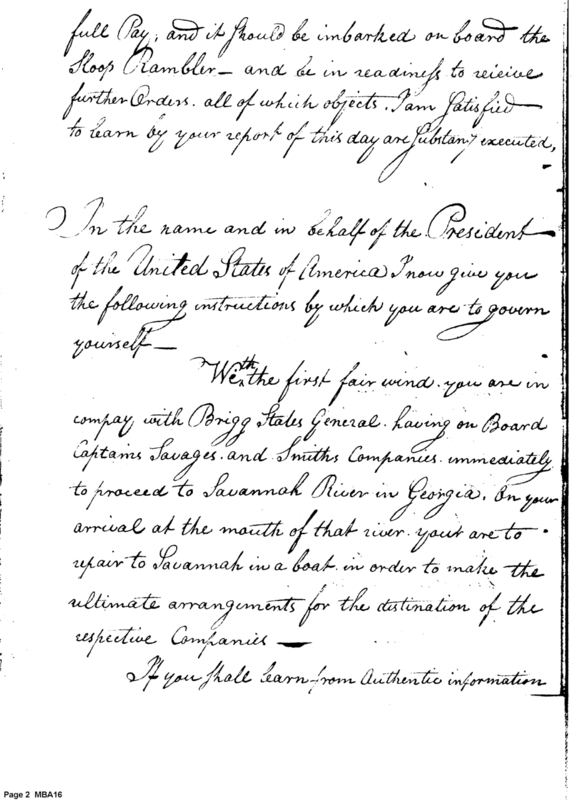 full Pay, and it should be imbarked on board the
Sloop Rambler — and be in readiness to reieive
further Orders. all of which objects. I am Satisfied
to learn by your report of this day are Substany executed,
In the name and in behalf of the President
of the United States of America I now give you
the following instructions by which you are to govern
yourself —
With the first fair wind. you are in
compay with Brigg States General. having on Board
Captains Savages. and Smiths Companies. immediately
to proceed to Savannah River in Georgia. On your
arrival at the mouth of that river. your are to
repair to Savannah in a boat. in order to make the
ultimate arrangements for the distination of the
respective Companies —
If you shall learn from Authentic information
Page 2 MBA16